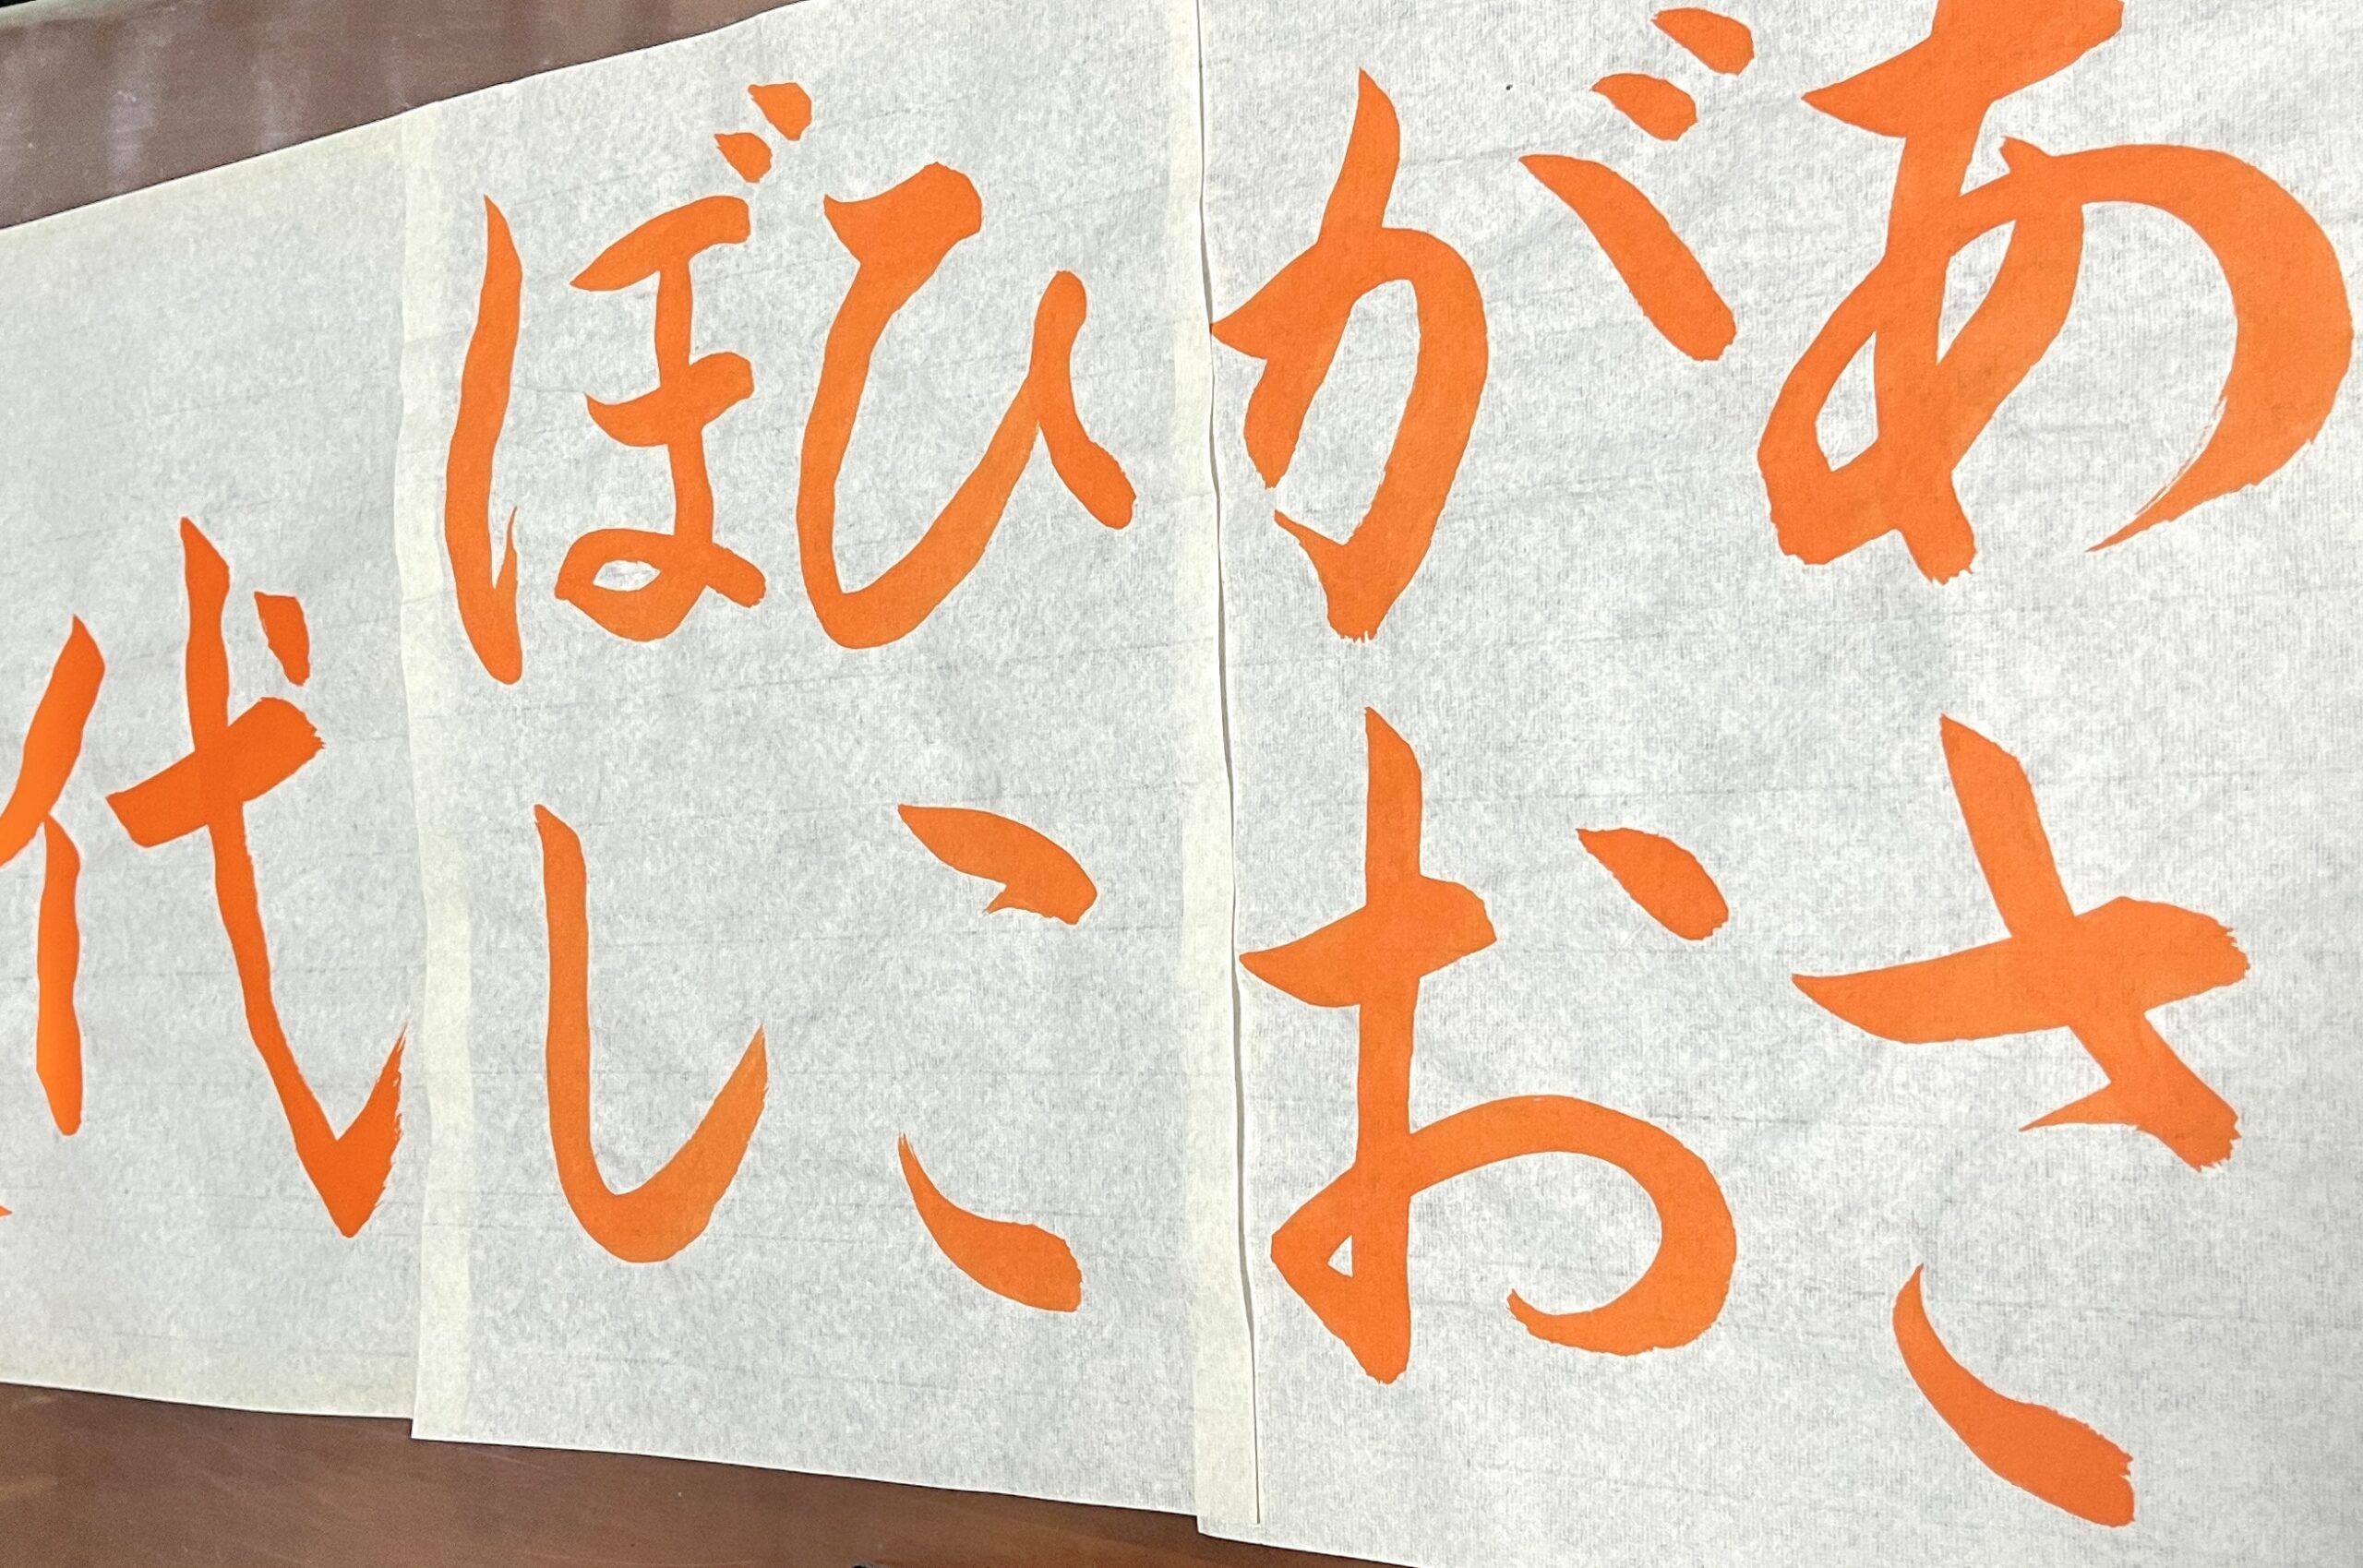 あさ
がお
ひこ
ぼし
代